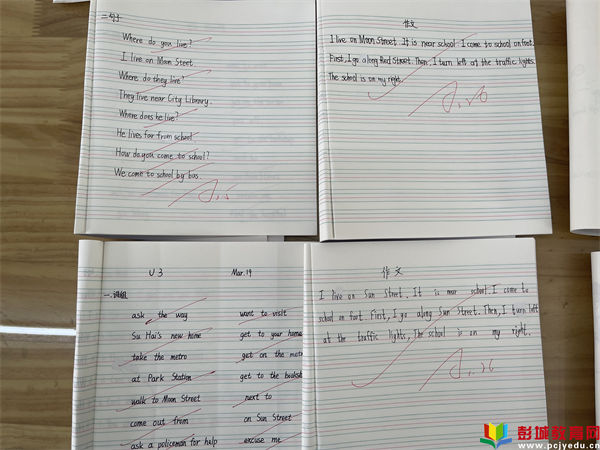 二.句子
Where do you live?
I live on Moon Steet.
Where do they live?
They live near City Library.
Where does he live?
He lives far from school.
How do you come to school?
We come to school by bus.
作文
I live on Moon Street. It is near school. I come to school on foot.
First, I go along Red Street. Then, I turn left at the traffic lights.
The school is on my right.
U3 Mar.19
一.词组
ask the way want to visit
Su Hai's new home get to your home
take the metro get on the metro
at Park Station get to the
walk to Moon Street next to
come out from on Sun Street
ask a policeman for help excuse me
作文
I live on Sun Street. It is near school. I come to
school on foot. First, I go along Sun Street. Then, I turn left
at the traffic lights, The school is on my right.
彭城教育网
www.pcjyedu.cn